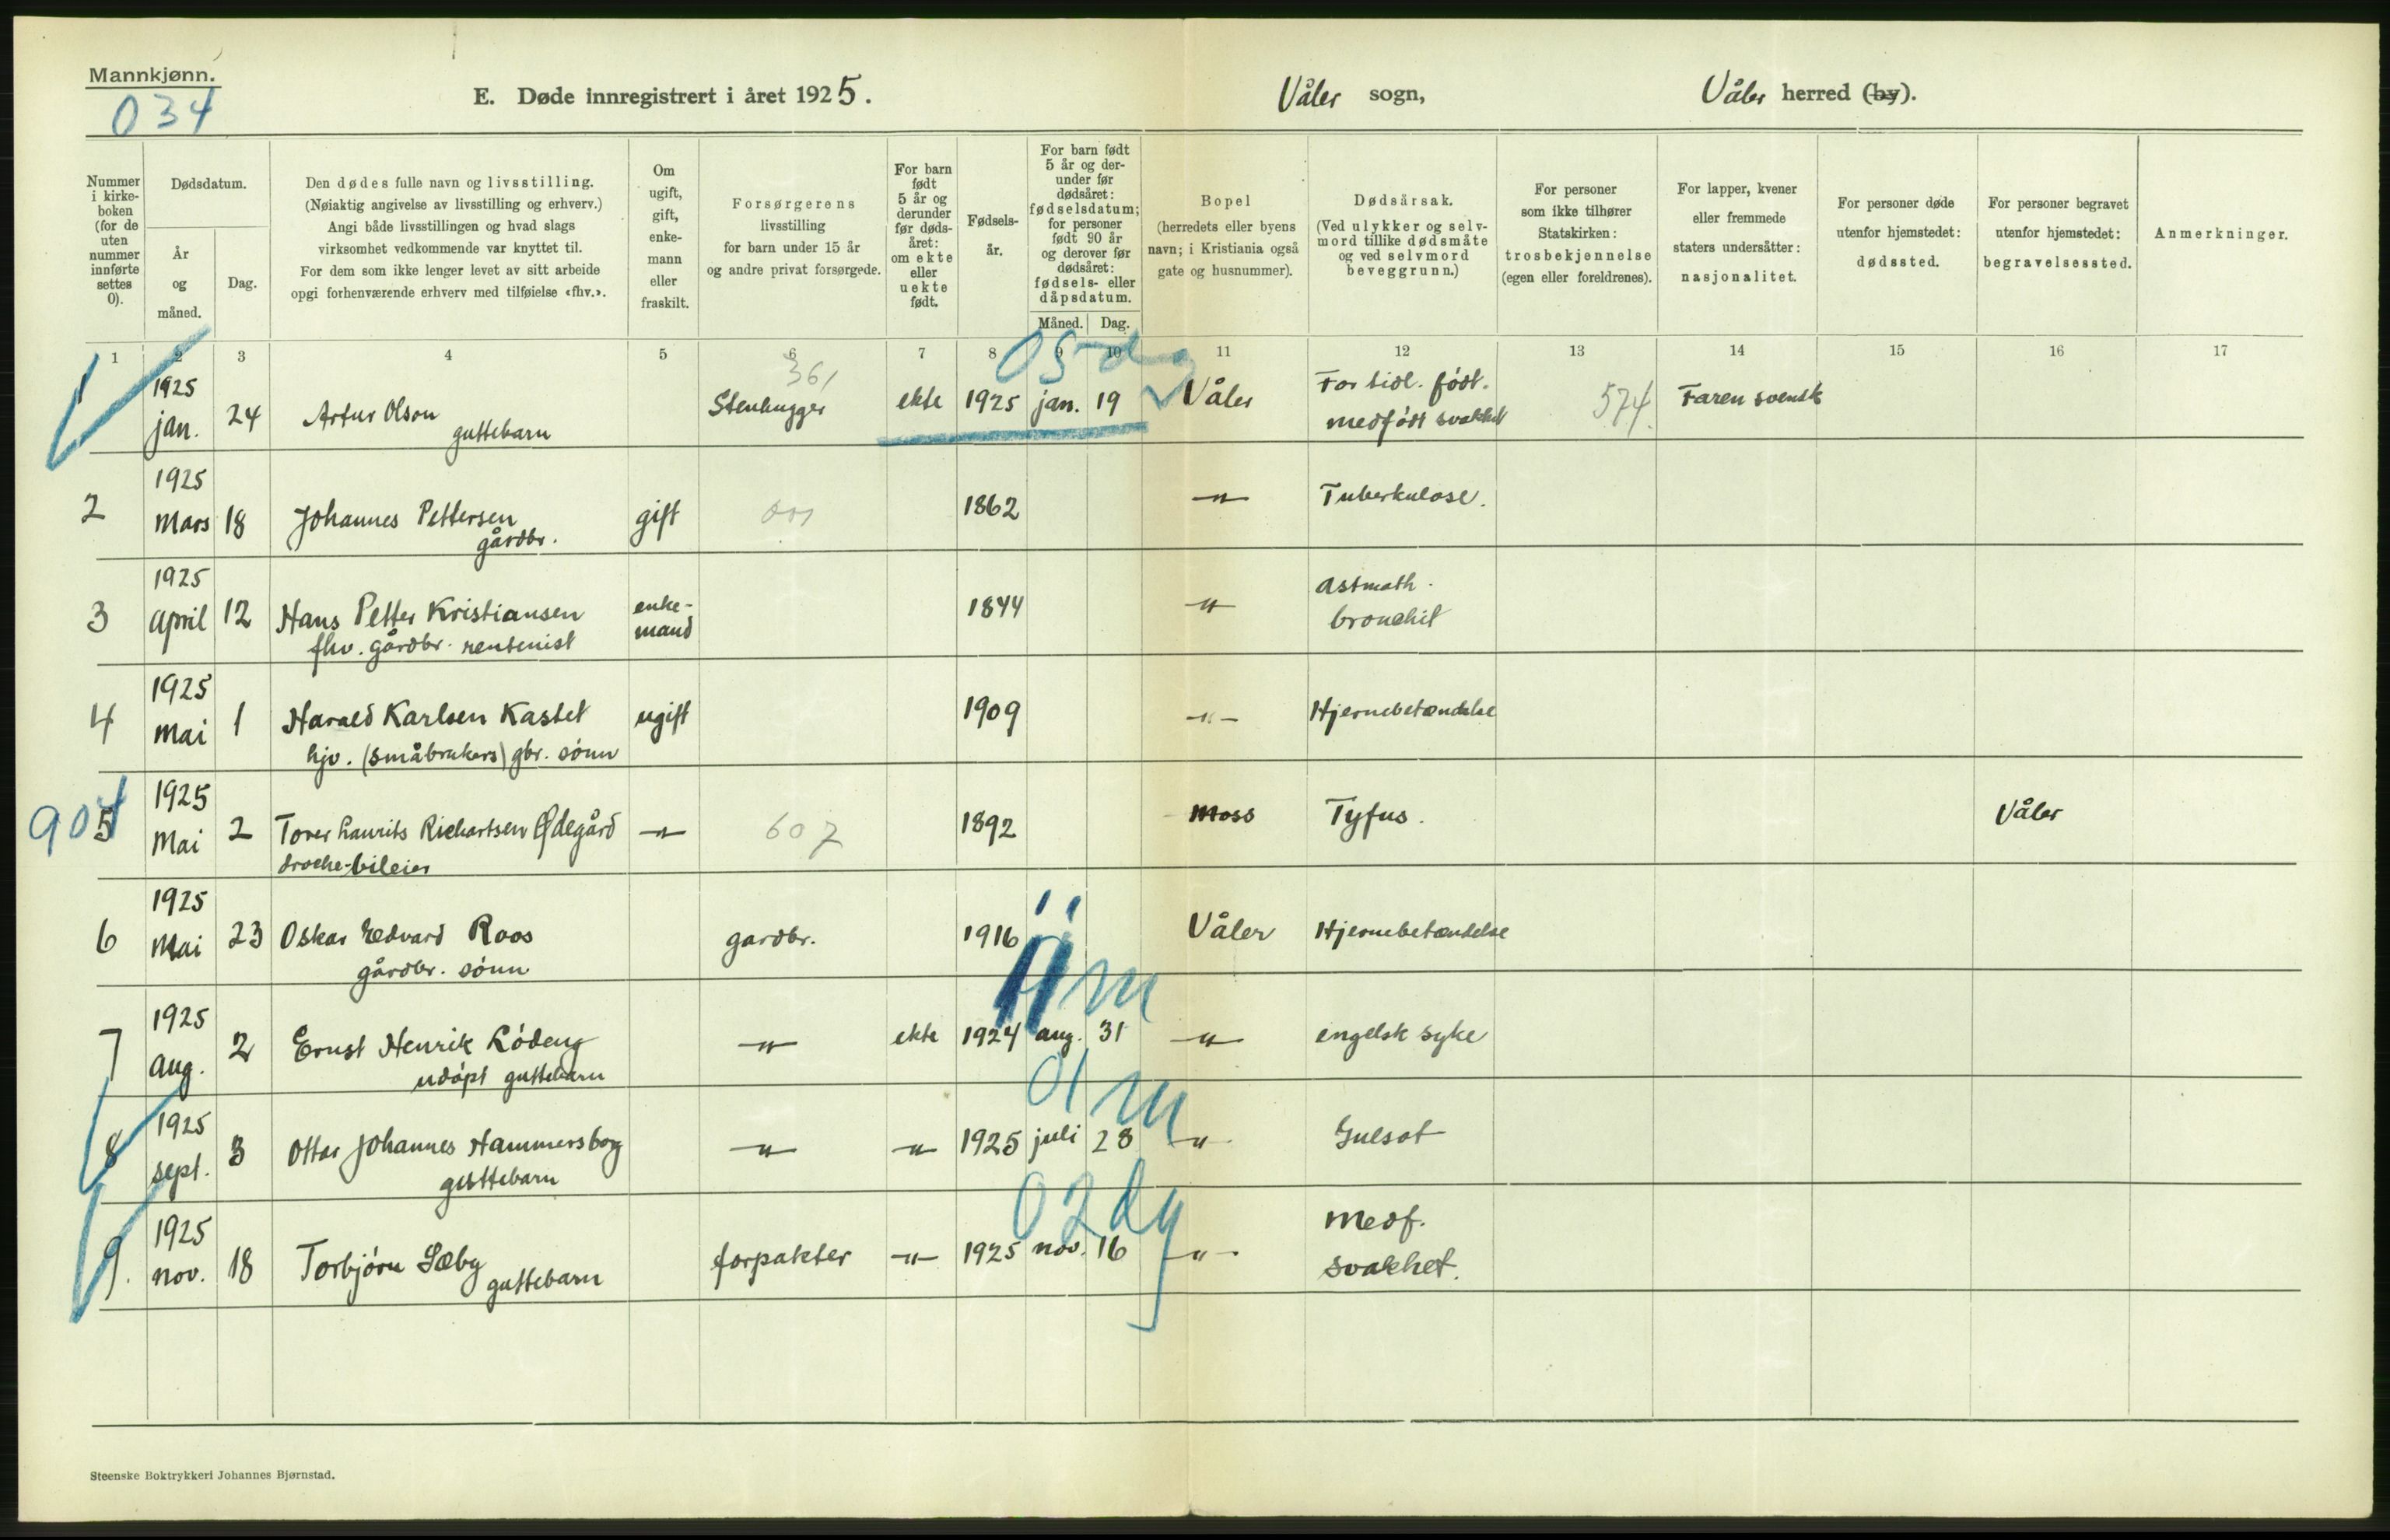 Mannkjønn.
034
E. Døde innregistrert i året 1925.
Våler sogn,
Våler herred (by).
Nummer i kirke-boken (for de uten nummer innførte settes 0).
Dødsdatum.
År og måned.
Dag.
Den dødes fulle navn og livsstilling.
(Nøiaktig angivelse av livsstilling og erhverv.)
Angi både livsstillingen og hvad slags
virksomhet vedkommende var knyttet til.
For dem som ikke lenger levet av sitt arbeide
opgi forhenværende erhverv med tilføielse «fhv.».
Om ugift, gift, enke-mann eller fraskilt.
Forsørgerens
livsstilling
for barn under 15 år
og andre privat forsørgede.
For barn født 5 år og derunder før døds-året: om ekte eller uekte født.
Fødsels-år.
For barn født 5 år og der-under før dødsåret: fødselsdatum; for personer født 90 år og derover før dødsåret: fødsels- eller dåpsdatum.
Måned. Dag.
Bopel
(herredets eller byens
navn; i Kristiania også
gate og husnummer).
Dødsårsak.
(Ved ulykker og selv-
mord tillike dødsmåte
og ved selvmord
beveggrunn.)
For personer
som ikke tilhører
Statskirken:
trosbekjennelse
(egen eller foreldrenes).
For lapper, kvener
eller fremmede
staters undersåtter:
nasjonalitet.
For personer døde
utenfor hjemstedet:
dødssted.
For personer begravet
utenfor hjemstedet:
begravelsessted.
Anmerkninger.
1 2 3 4 5 6 7 8 9 10 11 12 13 14 15 16 17
05 dg
361
1 1925 jan. 24 Artur Olson guttebarn Stenhugger ekte 1925 jan. 19 Våler For tidl. født. medfødt svakhet 574. Faren svensk
2 1925 Mars 18 Johannes Pettersen gårdbr. gift 1862 -"- Tuberkulose.
3 1925 April 12 Hans Petter Kristiansen fhv. gårdbr. rentenist enke-mand 1844 -"- Astmath. bronchit
4 1925 Mai 1 Harald Karlsen Kastet hjv. (småbrukers) gbr. sønn ugift 1909 -"- Hjernebetændelse
904
5 1925 Mai 2 Laurits Richartsen Ødegård droche-bileier -"- 607 1892 Moss Tyfus. Våler
6 1925 Mai 23 Oskar Edvard Roos gårdbr. sønn gardbr. 1916 Våler Hjernebetændelse
11 m
7 1925 Aug. 2 Ernst Henrik Lødeng udøpt guttebarn -"- ekte 1924 aug. 31 -"- engelsk syke
01 m
8 1925 sept. 3 Ottar Johannes Hammersborg guttebarn -"- -"- 1925 juli 28 -"- Gulsot
02 dg
9. 1925 nov. 18 Torbjørn Sæby guttebarn forpakter -"- 1925 nov. 16 -"- Medf. svakhet.
Steenske Boktrykkeri Johannes Bjørnstad.